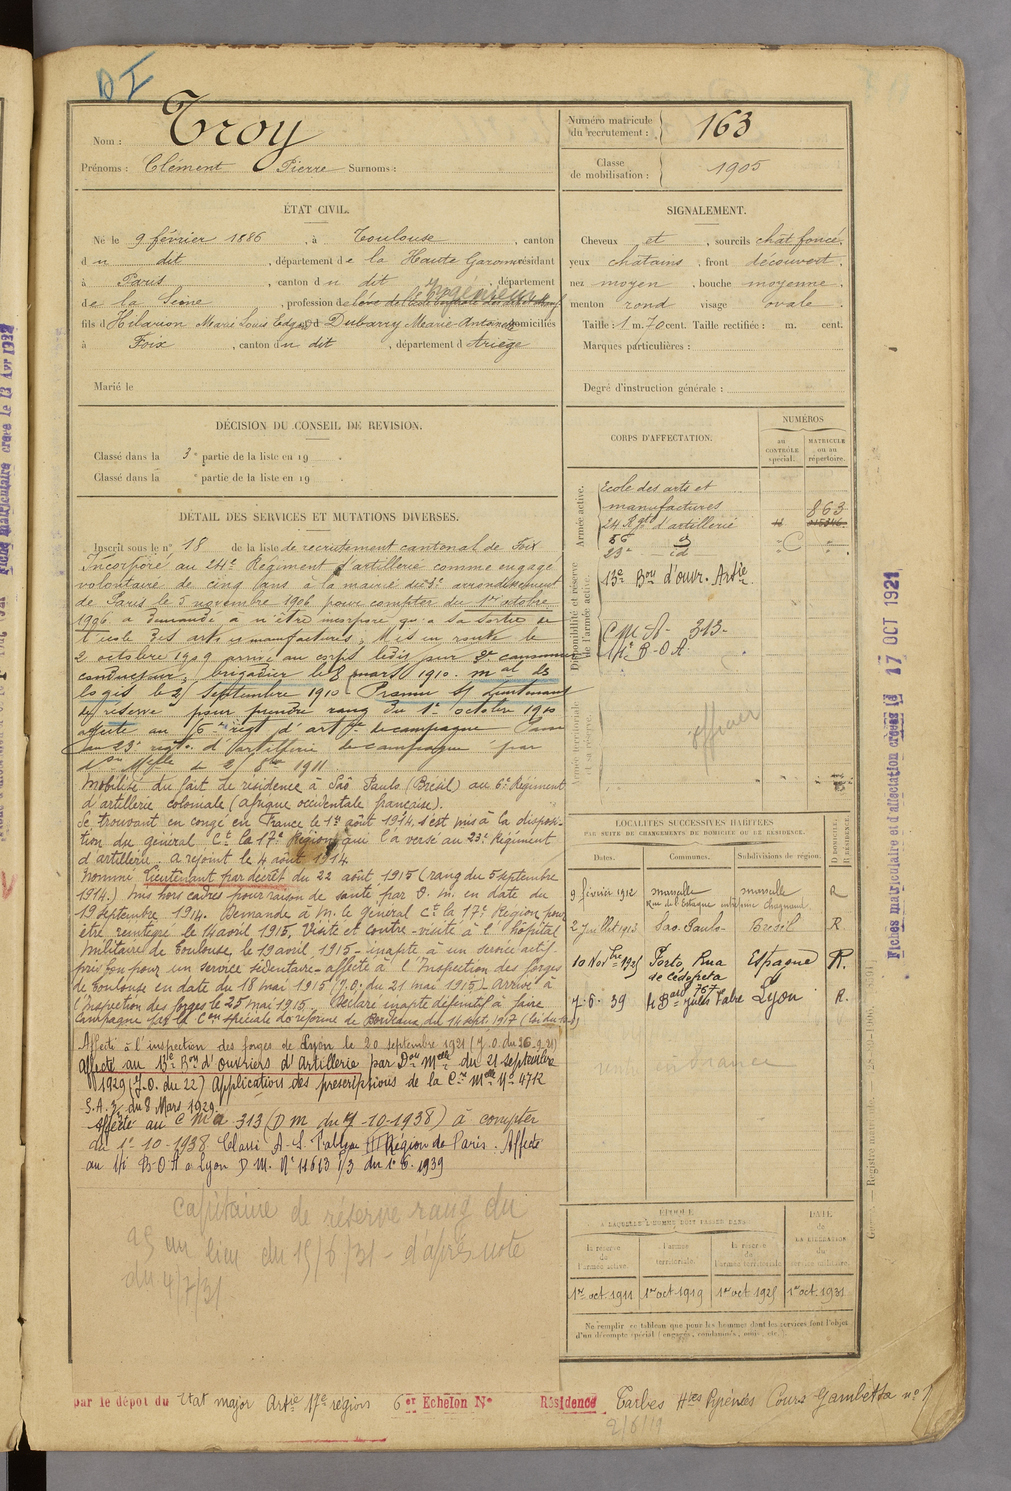 DI
Nom : Troy
Prénoms : Clément Pierre Surnoms :
Numéro matricule du recrutement : 163
Classe de mobilisation : 1905
ÉTAT CIVIL.
Né le 9 février 1886, à Toulouse, canton
du dit, département de la Haute Garonne résidant
à Paris, canton du dit, département
de la Seine, profession de Ingénieur
fils d'Hilarion Marie Louis Edgard et d Dubarry Marie Antoinette domiciliés
à Foix, canton du dit, département d Ariège
Marié le
SIGNALEMENT.
Cheveux et, sourcils chat foncé,
yeux chatains, front découvert,
nez moyen, bouche moyenne,
menton rond visage ovale.
Taille : 1 m. 70 cent. Taille rectifiée : m. cent.
Marques particulières :
Degré d'instruction générale :
DÉCISION DU CONSEIL DE REVISION.
Classé dans la 3e partie de la liste en 19
Classé dans la e partie de la liste en 19
DÉTAIL DES SERVICES ET MUTATIONS DIVERSES.
Inscrit sous le n° 18 de la liste de recrutement cantonal de Foix
Incorporé au 24e Régiment d'artillerie comme engagé
volontaire de cinq ans à la mairie du 3e arrondissement
de Paris le 5 novembre 1906 pour compter du 1er octobre
1906 a demandé à n'être incorporé qu'à sa sortie de
l'école des arts et manufactures, Mis en route le
2 octobre 1909 arrivé au corps ledit jour 2e canonnier
conducteur, brigadier le 8 mars 1910. mal des
logis le 21 septembre 1910 Promu s/ Lieutenant
de réserve pour prendre rang du 1er octobre 1910
affecté au 56e régt d'artie de campagne Passé
au 23e régt d'artillerie de campagne par
don Mlle du 2/ 8bre 1911.
Mobilisé du fait de résidence à Saô Paulo (Brésil) au 6e Régiment
d'artillerie coloniale (Afrique occidentale française).
Se trouvant en congé en France le 1er août 1914, s'est mis à la disposi-
tion du général Ct la 17e Région qui l'a versé au 23e Régiment
d'artillerie. a rejoint le 4 août 1914
Nommé Lieutenant par décret du 22 août 1915 (rang du 5 septembre
1914.) Mis hors cadres pour raison de santé par D. m. en date du
19 septembre 1914. Demande à M. le Général Ct la 17e Région pour
être réintégré le 14 avril 1915. Visite et contre-visite à l'hôpital
Militaire de Toulouse, le 19 avril 1915 - inapte à un service actif-
pris bon pour un service sédentaire - affecté à l'Inspection des forges
de Toulouse en date du 18 mai 1915 (J.O. du 21 mai 1915) Arrivé à
l'Inspection des forges le 25 mai 1915. Déclaré inapte définitif à faire
campagne par la Con spéciale de réforme de Bordeaux du 14 sept. 1917
Affecté à l'inspection des forges de Lyon le 20 septembre 1921 (J.O. du 26-9-21)
Affecté au 13e Bon d'ouvriers d'Artillerie par Don Melle du 21 septembre
1929 (J.O. du 22) Application des prescriptions de la Cre Melle No 4712
S.A. 3/ du 8 Mars 1929.
Affecté au C M A 313 (D m du 7-10-1938) à compter
du 1er 10-1938 Région de Paris. Affecté
au 1/4 B-O A à Lyon D M. No 11613 1/3 du 1er 6. 1939
capitaine de réserve rang du
25 au lieu du 15/6/31 - d'après note
du 4/7/31
CORPS D'AFFECTATION.
NUMÉROS
au CONTRÔLE spécial.
MATRICULE ou au répertoire.
Armée active.
Ecole des arts et
manufactures
24 Rgt d'artillerie 863
56 d
23e id
Disponibilité et réserve de l'armée active.
13e Bon d'ouvr. Artie
C M A - 313-
1/4e B-O A.
Armée territoriale et sa réserve.
officier
LOCALITÉS SUCCESSIVES HABITÉES
PAR SUITE DE CHANGEMENTS DE DOMICILE OU DE RÉSIDENCE.
Dates. Communes. Subdivisions de région. D DOMICILE. R RÉSIDENCE
9 février 1912 Marseille Marseille R
Rue de l'Estaque
2 Juillet 1913 Sao-Paulo Brésil R.
10 Novbre 1925 Porto, Rua Espagne R.
de Cedofeta 767
7. 6. 39 14 Bard Jules Favre Lyon R.
rentré en France
ÉPOQUE
À LAQUELLE L'HOMME DOIT PASSER DANS
la réserve de l'armée active.
l'armée territoriale.
la réserve de l'armée territoriale
DATE de LA LIBÉRATION du service militaire.
1er oct. 1911 1er oct. 1919 1er oct. 1925 1er oct. 1931
Ne remplir ce tableau que pour les hommes dont les services font l'objet
d'un décompte spécial (engagés, condamnés, omis, etc.).
par le dépôt du Etat major Artie 17e région 6er Echelon No Résidence Tarbes Htes Pyrénées Cours Gambetta no 1
2/6/19
Fiches matriculaire et d'affectation créées le 17 OCT 1921